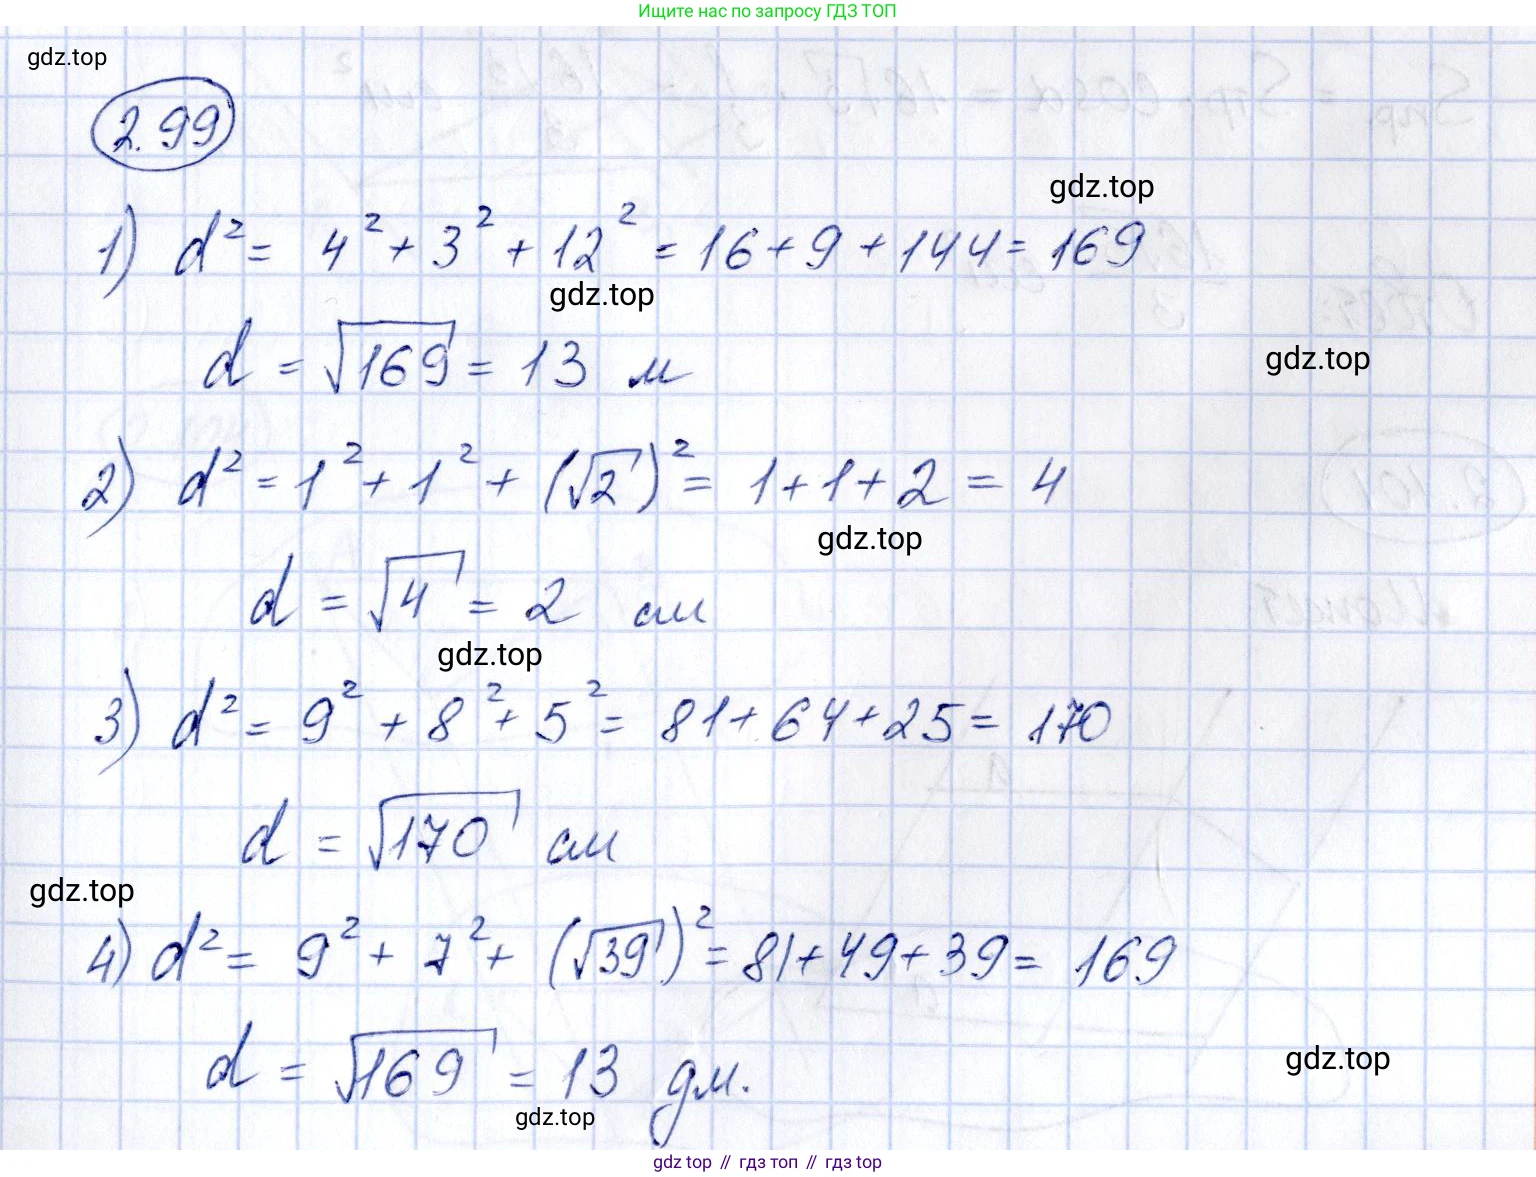 Ищите нас по запросу ГДЗ ТОП
gdz.top
2.99
gdz.top
1) d² = 4² + 3² + 12² = 16 + 9 + 144 = 169
gdz.top
d = √169 = 13 м
gdz.top
2) d² = 1² + 1² + (√2)² = 1 + 1 + 2 = 4
gdz.top
d = √4 = 2 см
gdz.top
3) d² = 9² + 8² + 5² = 81 + 64 + 25 = 170
d = √170 см
gdz.top
4) d² = 9² + 7² + (√39)² = 81 + 49 + 39 = 169
d = √169 = 13 дм.
gdz.top
gdz.top
gdz top // гдз топ // гдз top